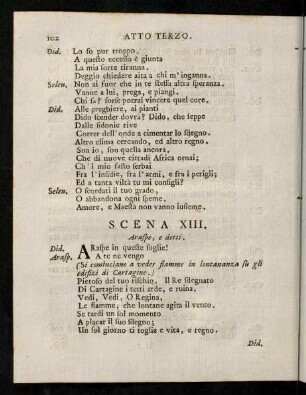 102 ATTO TERZO.
Did. Lo so pur troppo.
A questo eccesso è giunta
La mia sorte tiranna.
Deggio chiedere aita a chi m'inganna.
Selen. Non ai fuor che in te stessa altra speranza.
Vanne a lui, prega, e piangi.
Chi sa? forse potrai vincere quel core.
Did. Alle preghiere, ai pianti
Dido scender dovrà? Dido, che seppe
Dalle sidonie rive
Correr dell'onde a cimentar lo sdegno.
Altro clima cercando, ed altro regno.
Son io, son quella ancora,
Che di nuove cittadi Africa ornai;
Ch'il mio fasto serbai
Fra l'insidie, fra l'armi, e fra i perigli;
Ed a tanta viltà tu mi consigli?
Selen. O scordati il tuo grado,
O abbandona ogni speme,
Amore, e Maestà non vanno insieme.
SCENA XIII.
Araspe, e detti.
Did. ARaspe in queste soglie!
Arasp. A te ne vengo
(Si cominciano a veder fiamme in lontananza su gli
edifizi di Cartagine.)
Pietoso del tuo rischio. Il Re sdegnato
Di Cartagine i tetti arde, e ruina.
Vedi, Vedi, O Regina,
Le fiamme, che lontane agita il vento.
Se tardi un sol momento
A placar il suo sdegno;
Un sol giorno ti toglie e vita, e regno.
Did.